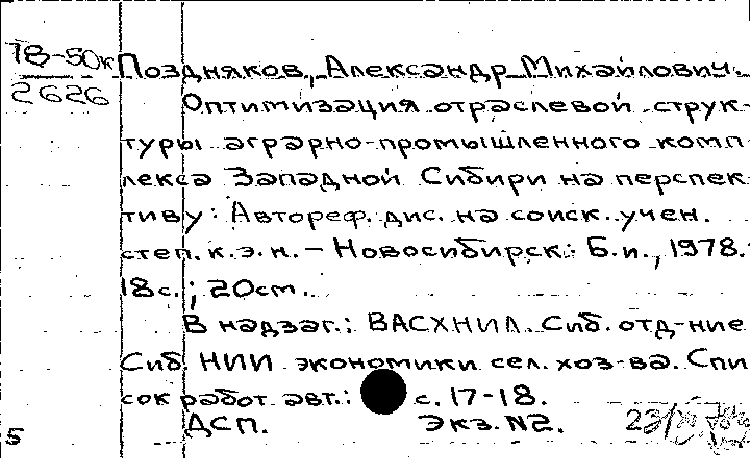 78-50к Поздняков, Александр Михайлович.
2626
Оптимизация отраслевой струк-
туры аграрно-промышленного комп
лекса Западной Сибири на перспек
тиву: Автореф. дис. на соиск. учен.
степ. к.э.н. – Новосибирск: Б.и., 1978.
18с.; 20см.
В надзаг.: ВАСХНИЛ. Сиб. отд-ние
Сиб. НИИ экономики сел. хоз-ва. Спи
сок работ авт.: с. 17-18.
ДСП. Экз. №2.
5